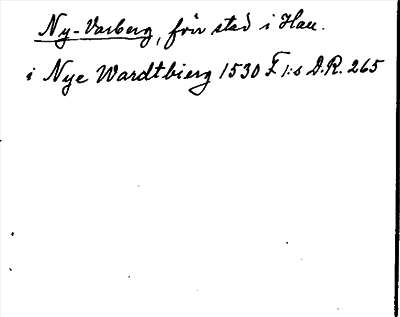 Ny-Varberg, förr stad i Hall.
i Nye Wardtbierg 1530 F I:s D.R. 265